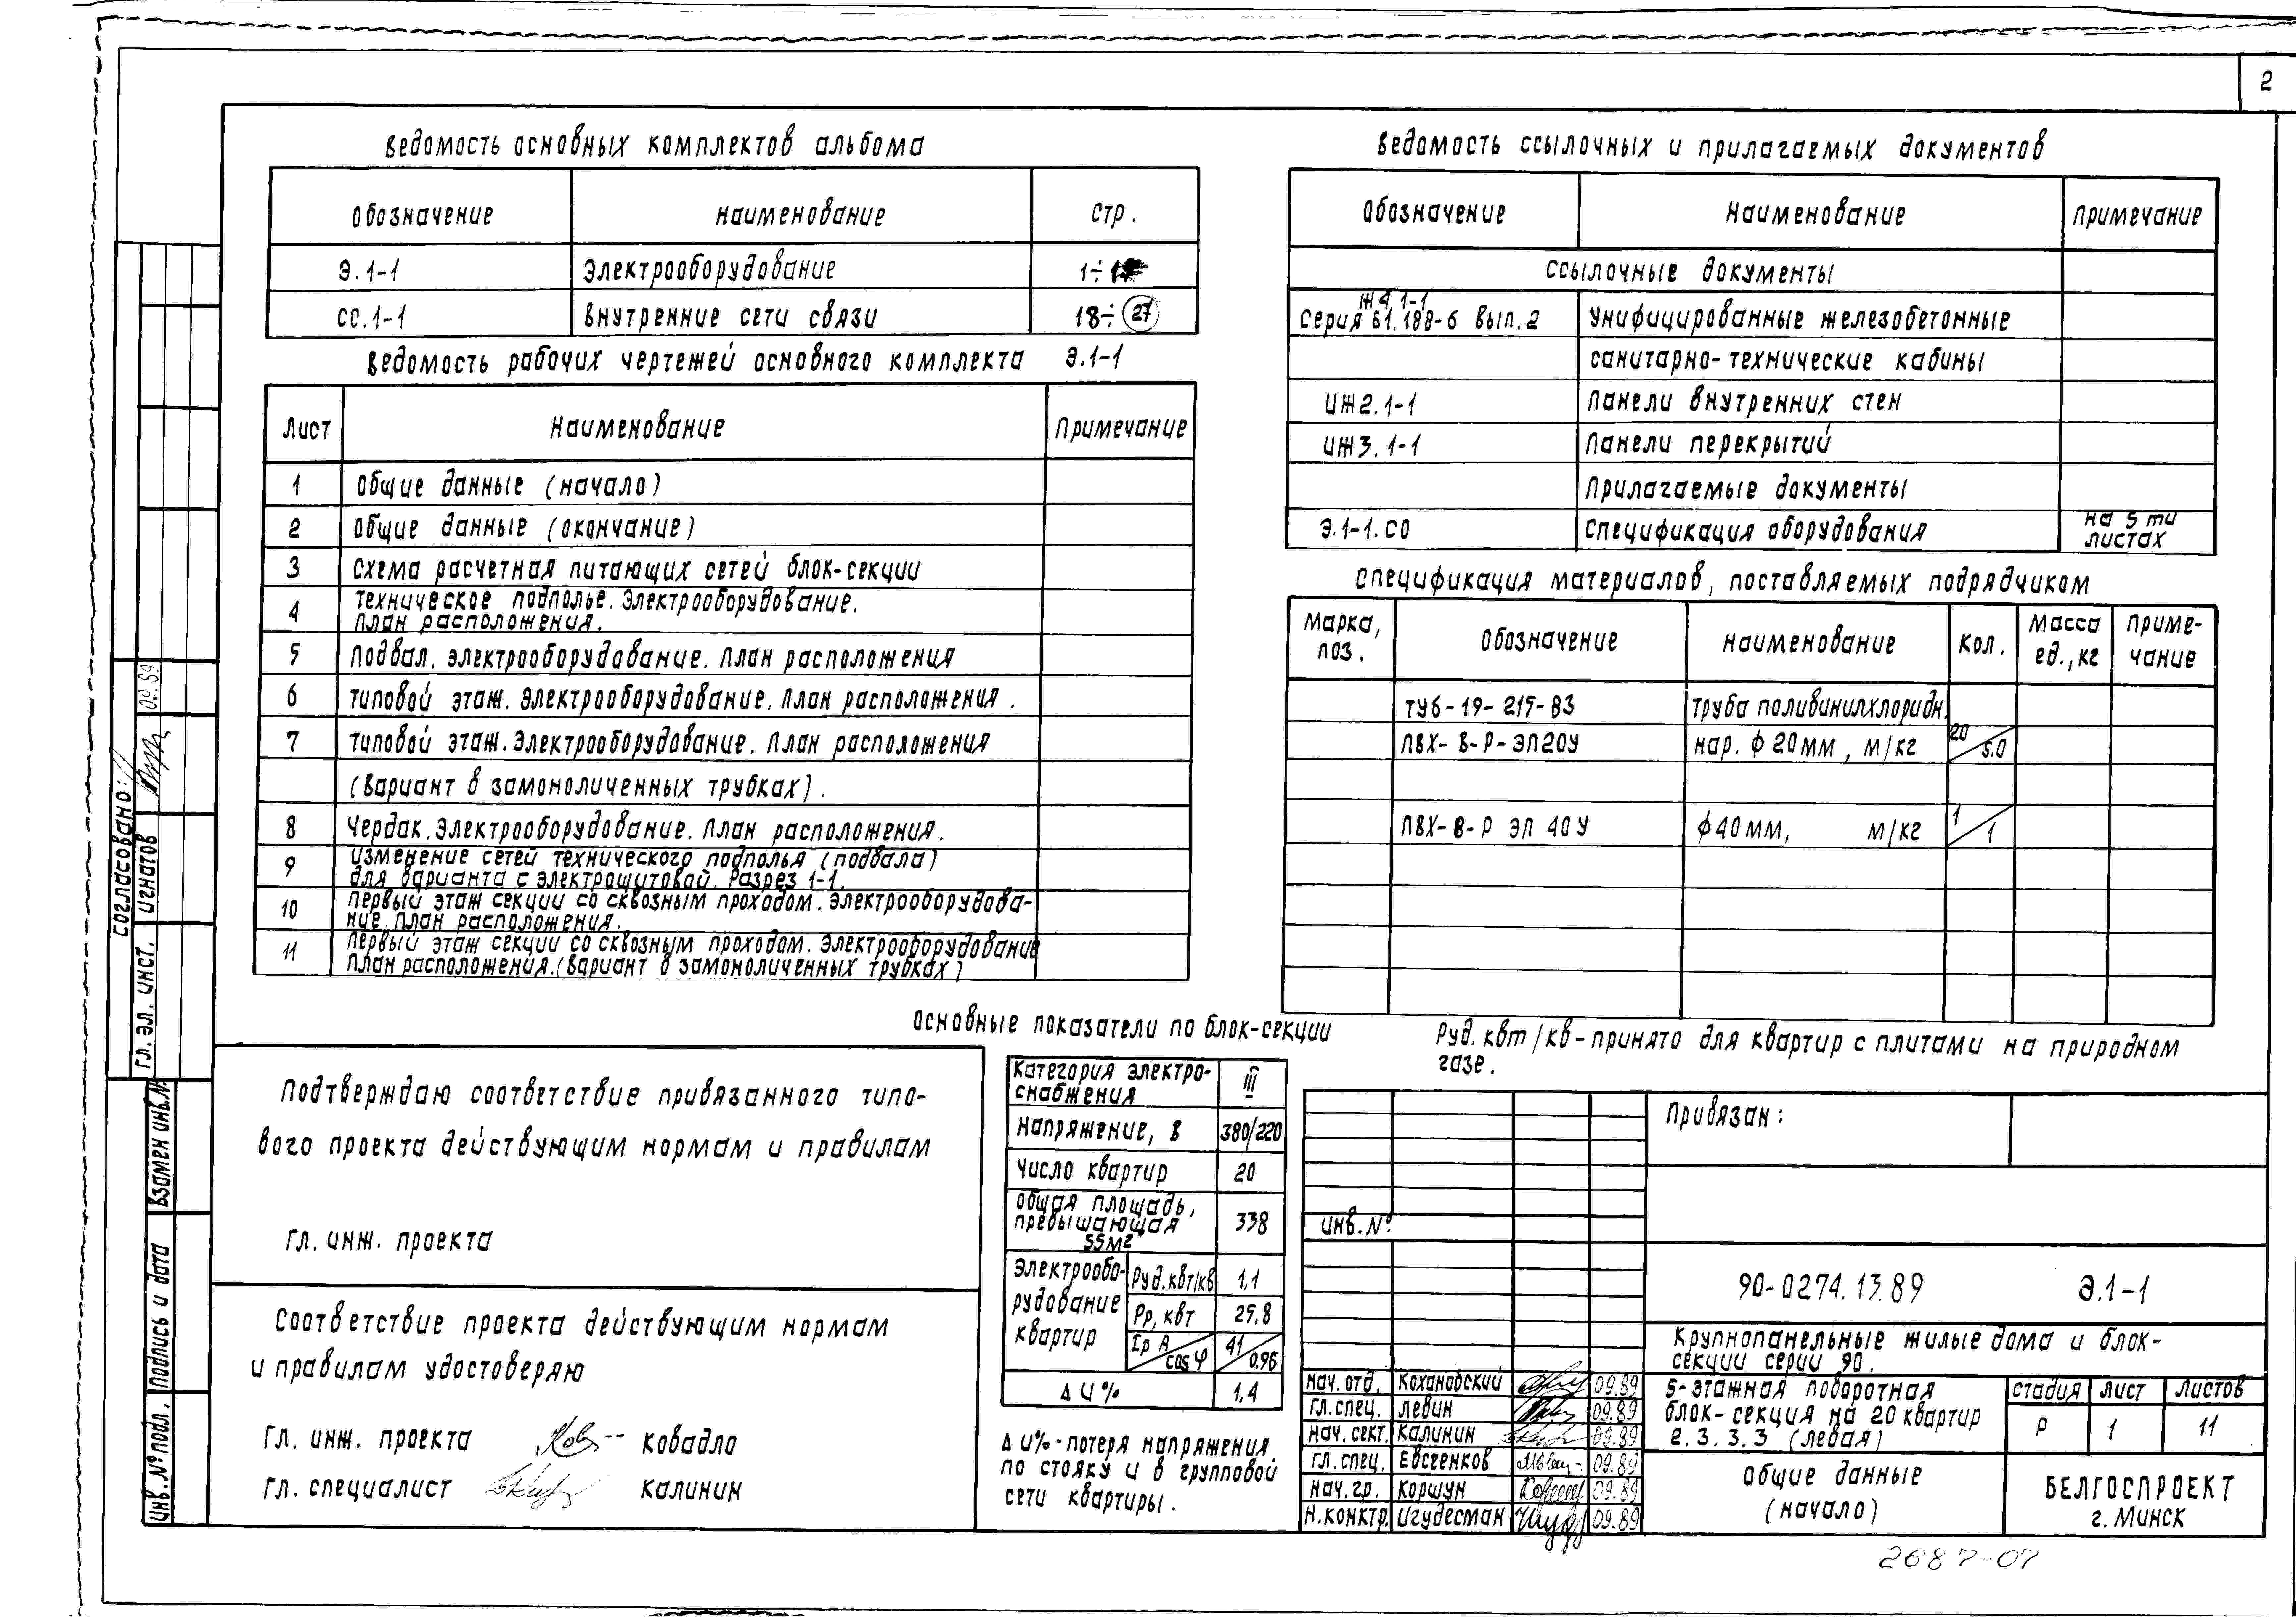 2
Ведомость основных комплектов альбома
Обозначение Наименование Стр.
Э.1-1 Электрооборудование 1÷
СС.1-1 Внутренние сети связи 18÷27
Ведомость рабочих чертежей основного комплекта Э.1-1
Лист Наименование Примечание
1 Общие данные (начало)
2 Общие данные (окончание)
3 Схема расчетная питающих сетей блок-секции
4 Техническое подполье. Электрооборудование.
План расположения.
5 Подвал. Электрооборудование. План расположения
6 Типовой этаж. Электрооборудование. План расположения.
7 Типовой этаж. Электрооборудование. План расположения
(Вариант в замоноличенных трубках).
8 Чердак. Электрооборудование. План расположения.
9 Изменение сетей технического подполья (подвала)
для варианта с электрощитовой. Разрез 1-1.
10 Первый этаж секции со сквозным проходом. Электрооборудова-
ние. План расположения.
11 Первый этаж секции со сквозным проходом. Электрооборудование
План расположения. (Вариант в замоноличенных трубках)
Ведомость ссылочных и прилагаемых документов
Обозначение Наименование Примечание
Ссылочные документы
Ж4.1-1
Серия Б1.188-6 вып.2 Унифицированные железобетонные
санитарно-технические кабины
ИЖ2.1-1 Панели внутренних стен
ИЖ3.1-1 Панели перекрытий
Прилагаемые документы
Э.1-1.СО Спецификация оборудования на 5ти
листах
Спецификация материалов, поставляемых подрядчиком
Марка, поз. Обозначение Наименование Кол. Масса ед., кг Приме-чание
ТУ6-19-215-83 Труба поливинилхлоридн.
ПВХ-В-Р-ЭП20У нар. ф 20мм, м/кг 20/5.0
ПВХ-В-Р ЭП 40У ф40мм, м/кг 1/1
Руд. квт/кв - принято для квартир с плитами на природном
газе.
Основные показатели по блок-секции
Категория электро-
снабжения III
Напряжение, В 380/220
Число квартир 20
Общая площадь,
превышающая
55м2 338
Электрообо-
рудование
квартир
Руд. квт/кв 1,1
Рр, квт 25,8
Iр А/cos φ 41/0.96
Δ U % 1,4
Δ U% - потеря напряжения
по стояку и в групповой
сети квартиры.
Подтверждаю соответствие привязанного типо-
вого проекта действующим нормам и правилам
Гл. инж. проекта
Соответствие проекта действующим нормам
и правилам удостоверяю
Гл. инж. проекта Ковадло
Гл. специалист Калинин
Согласовано:
Гл. эл. инст. Игнатов 09.89
Взамен инв.№
Подпись и дата
Инв. № подл.
Привязан:
Инв. №
90-0274.13.89 Э.1-1
Крупнопанельные жилые дома и блок-
секции серии 90.
Нач. отд. Кохановский 09.89
Гл. спец. Левин 09.89
Нач. сект. Калинин 09.89
Гл. спец. Евсеенков 09.89
Нач. гр. Коршун 09.89
Н. контр. Игудесман 09.89
5-этажная поворотная
блок-секция на 20 квартир
2.3.3.3 (левая)
Стадия Лист Листов
Р 1 11
Общие данные
(начало)
БЕЛГОСПРОЕКТ
г. Минск
2687-07